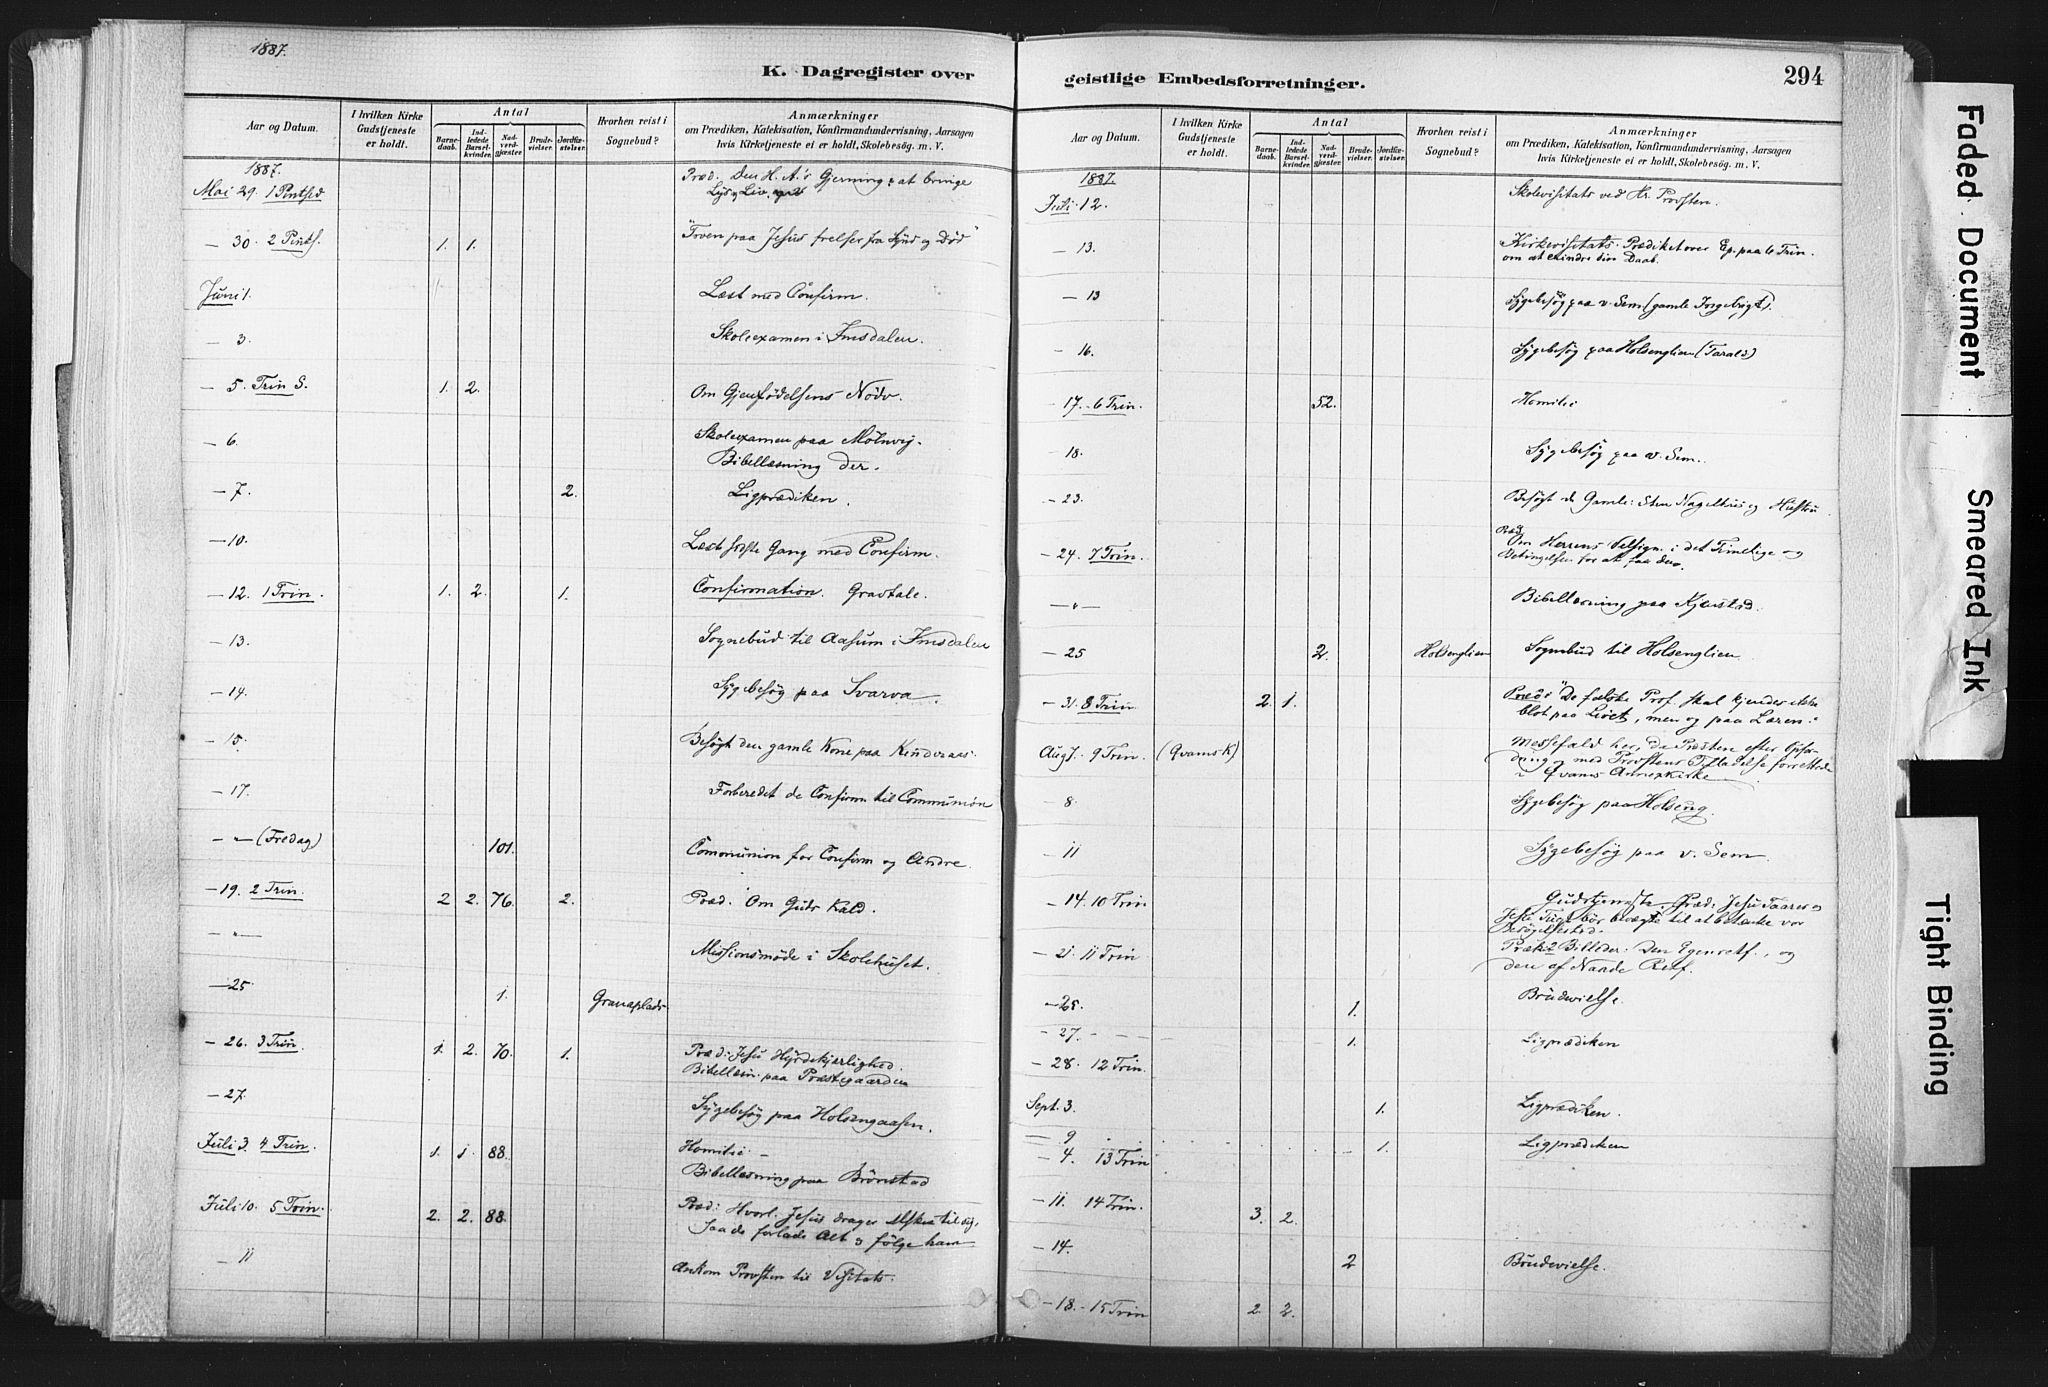 1887.
K. Dagregister over
Aar og Datum.
I hvilken Kirke Gudstjeneste er holdt.
Antal
Barnedaab.
Indledede Barselkvinder.
Nadverdgjæster
Brudevielser.
Jordfæstelser.
Hvorhen reist i Sognebud?
Anmærkninger
om Prædiken, Katekisation, Konfirmandundervisning, Aarsagen
hvis Kirketjeneste ei er holdt, Skolebesøg. m. V.
1887.
Mai 29. 1 Pintsed Præd. Den H. A.'s Gjerning: at bringe
Lys og Liv.
— 30. 2 Pints. 1. 1. "Troen paa Jesus frelser fra Synd og Død"
Juni 1. Læst med Confirm.
— 3. Skoleexamen i Imsdalen.
— 5. Trin S. 1. 2. Om Gjenfødelsens Nødv.
— 6. Skoleexamen paa Mølnvej.
Bibellæsning der.
— 7. 2. Ligprædiken.
— 10. Læst sidste Gang med Confirm.
— 12. 1 Trin. 1. 2. 1. Confirmation. Gravtale.
— 13. Sognebud til Aasum i Imsdalen
— 14. Sygebesøg paa Svarva.
— 15. Besøgt den gamle Kone paa
— 17. Forberedet de Confirm til Communion
— " — (Fredag) 101. Communion for Confirm og Andre.
— 19. 2 Trin. 2 2. 76. 2. Præd: Om Guds Kald.
— " — Missionsmøde i Skolehuset.
— 25 1. Granaplads.
— 26. 3 Trin. 1. 2. 70. 1. Præd: Jesu Hyrdekjærlighed.
Bibellæsn. paa Præstegaarden
— 27. Sygebesøg paa Holsengaasen.
Juli 3. 4 Trin. 1. 1. 88. Homilie —
Bibellæsning paa Brønstad
Juli 10. 5 Trin. 2. 2. 88. Præd: Hvorl. Jesus drager til sig,
saa de forlade Alt og følge ham
— 11 Ankom Provsten til Visitats.
geistlige Embedsforretninger.
294
Aar og Datum.
I hvilken Kirke Gudstjeneste er holdt.
Antal
Barnedaab.
Indledede Barselkvinder.
Nadverdgjæster
Brudevielser.
Jordfæstelser.
Hvorhen reist i Sognebud?
Anmærkninger
om Prædiken, Katekisation, Konfirmandundervisning, Aarsagen
hvis Kirketjeneste ei er holdt, Skolebesøg. m. V.
1887.
Juli 12. Skolevisitats ved Hr. Provsten.
— 13. Kirkevisitats. Prædiket over Ep. paa 6 Trin.
om at erindre sin Daab.
— 13 Sygebesøg paa v. Sem (gamle Ingebrigt).
— 16. Sygebesøg paa Holsenglien (Tarald)
— 17. 6 Trin. 52. Homilie
— 18. Sygebesøg paa v. Sem.
— 23. Besøgt de Gamle: Sten Nagelhus og Hustru
— 24. 7 Trin. Præd
Om Herrens Velsign. i det Timelige og
Betingelsen for at faa den.
— " — Bibellæsning paa Kjærstad.
— 25 2. Holsenglien Sognebud til Holsenglien.
— 31. 8 Trin 2. 1. Præd: "De falske Prof. skal kjendes ikke
blot paa Livet, men og paa Læren."
Aug 7. 9 Trin. (Qvams K) Messefald her, da Præsten efter Opfordring
og med Provstens Tilladelse forrettede
i Qvams Annexkirke
— 8. Sygebesøg paa Holseng.
— 11 Sygebesøg paa v. Sem.
— 14. 10 Trin Gudstjeneste. Præd: Jesu Taarer og
Jesu Tugt bør bevæge til at betænke vor
Besøgelsestid.
— 21. 11 Trin Præk: 2 Billeder: Den Egenretf., og
den af Naade Retf.
— 25. 1. Brudevielse.
— 27. — — 1. Ligprædiken
— 28. 12 Trin.
Sept. 3. 1. Ligprædiken.
— 9 1. Ligprædiken
— 4. 13 Trin
— 11 14 Trin. 3. 2.
— 14. 2 Brudevielse.
— 18. — 15 Trin 2. 2.
Faded Document
Smeared Ink
Tight Binding